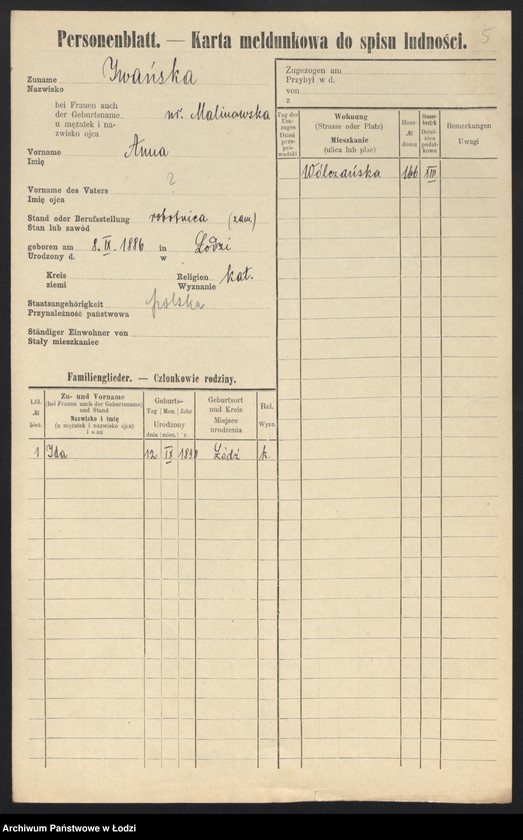 Personenblatt. — Karta meldunkowa do spisu ludności.
5
Zuname Iwańska
Nazwisko
bei Frauen auch
der Geburtsname
u mężatek i na-
zwisko ojca
ur. Malinowska
Vorname Anna
Imię
Vorname des Vaters ?
Imię ojca
Stand oder Berufsstellung robotnica (zam.)
Stan lub zawód
geboren am 8. IX. 1886 in Łodzi
Urodzony d. w
Kreis
ziemi
Religion kat.
Wyznanie
Staatsangehörigkeit polska
Przynależność państwowa
Ständiger Einwohner von
Stały mieszkaniec
Familienglieder. — Członkowie rodziny.
Lfd. № bież.
Zu- und Vorname
(bei Frauen auch der Geburtsname)
und Stand
Nazwisko i imię
(u mężatek i nazwisko ojca)
i stan
Geburts-
Tag Mon. Jahr
Urodzony
dnia mies. r.
Geburtsort
und Kreis
Miejsce
urodzenia
Rel.
Wyzn.
1 Ida 12 IX Łódź k.
Zugezogen am
Przybył w d.
von
z
Tag des
Um-
zuges
Dzień
prze-
pro-
wadzki
Wohnung
(Strasse oder Platz)
Mieszkanie
(ulica lub plac)
Haus-
№
domu
Steuer-
bezirk
Dziel-
nica
podat-
kowa
Bemerkungen
Uwagi
Wólczańska 166 XIII
Archiwum Państwowe w Łodzi